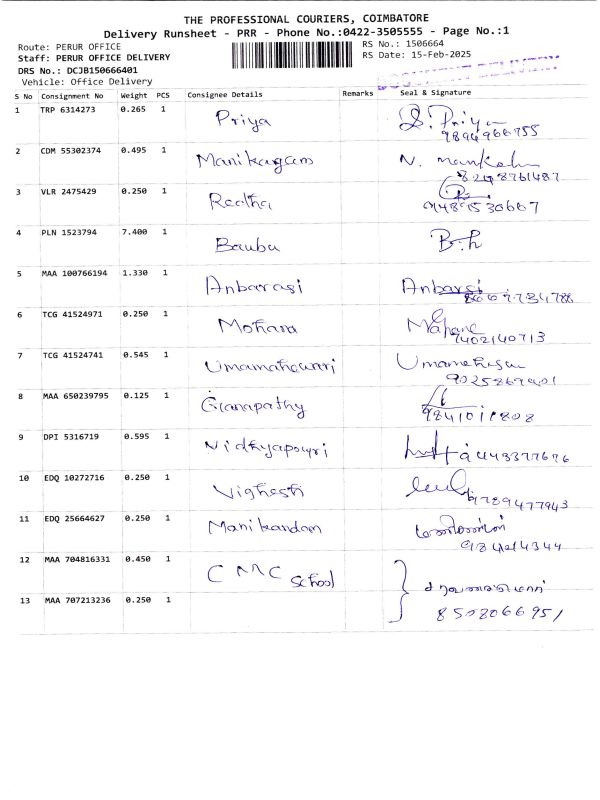 THE PROFESSIONAL COURIERS, COIMBATORE
Delivery Runsheet - PRR - Phone No.:0422-3505555 - Page No.:1
Route: PERUR OFFICE RS No.: 1506664
Staff: PERUR OFFICE DELIVERY RS Date: 15-Feb-2025
DRS No.: DCJB150666401
Vehicle: Office Delivery
S No Consignment No Weight PCS Consignee Details Remarks Seal & Signature
1 TRP 6314273 0.265 1 Priya S. Priya
9894966755
2 CDM 55302374 0.495 1 Manikagam N.
8248761487
3 VLR 2475429 0.250 1 Reetha
9489530667
4 PLN 1523794 7.400 1 Baubu B.
5 MAA 100766194 1.330 1 Anbarasi Anbarsi
6 TCG 41524971 0.250 1 Mohana
7402140713
7 TCG 41524741 0.545 1 Umamaheswari
8 MAA 650239795 0.125 1 Ganapathy
9 DPI 5316719 0.595 1
10 EDQ 10272716 0.250 1 Vighesh
9789477943
11 EDQ 25664627 0.250 1 Manikandan மணிகண்டன்
12 MAA 704816331 0.450 1 CMC School
13 MAA 707213236 0.250 1 8508066951